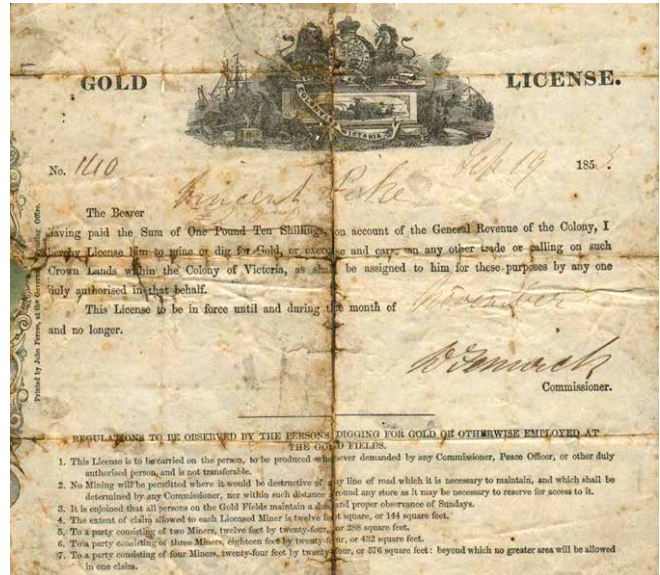 GOLD LICENSE.
COLONY VICTORIA
No. 140 Sep 19 1853.
Vincent Pike
The Bearer
having paid the Sum of One Pound Ten Shillings, on account of the General Revenue of the Colony, I
hereby License him to mine or dig for Gold, or, exercise and carry on any other trade or calling on such
Crown Lands within the Colony of Victoria, as shall be assigned to him for these purposes by any one
duly authorised in that behalf.
This License to be in force until and during the month of November
and no longer.
Commissioner.
Printed by John Ferres, at the Government Printing Office.
REGULATIONS TO BE OBSERVED BY THE PERSONS DIGGING FOR GOLD OR OTHERWISE EMPLOYED AT
THE GOLD FIELDS.
1. This License is to be carried on the person, to be produced whenever demanded by any Commissioner, Peace Officer, or other duly
authorised person, and is not transferable.
2. No Mining will be permitted where it would be destructive of any line of road which it is necessary to maintain, and which shall be
determined by any Commissioner, nor within such distance round any store as it may be necessary to reserve for access to it.
3. It is enjoined that all persons on the Gold Fields maintain a due and proper observance of Sundays.
4. The extent of claim allowed to each Licensed Miner is twelve feet square, or 144 square feet.
5. To a party consisting of two Miners, twelve feet by twenty-four, or 288 square feet.
6. To a party consisting of three Miners, eighteen feet by twenty-four, or 432 square feet.
7. To a party consisting of four Miners, twenty-four feet by twenty-four, or 576 square feet: beyond which no greater area will be allowed
in one claim.